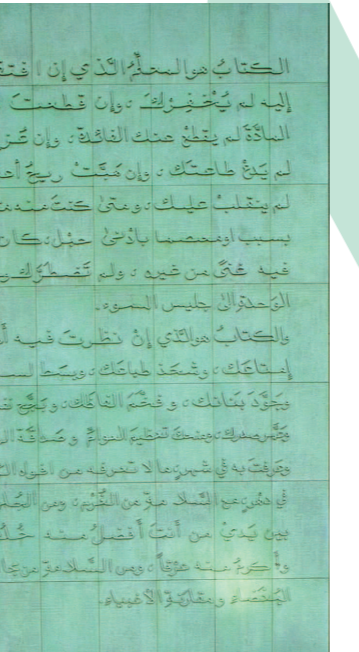 الكتابُ هو المعلِّمُ الَّذي إن افتق
إليه لم يُخْفِرْكَ، وإن قطعتَ
المادَّةَ لم يقطعْ عنك الفائدةَ، وإن عُزِ
لم يَدَعْ طاعتَك، وإن هَبَّتْ ريحُ أعد
لم ينقلبْ عليك، ومتى كنتَ منه مت
بسببٍ او معتصما بأدنى حبلٍ، كان
فيه غنًى من غيره، ولم تضطرّك و
الوَحدةِ إلى جليس السوء.
والكتابُ هو الَّذي إنْ نظرتَ فيه أ
إمتاعَك، وشحَذ طباعَك، وبسَط لسا
وجوَّدَ بنانَك، و فخَّمَ الفاظَك، وبجَّح نف
وعمَّر صدرَك، ومنحك تعظيمَ العوامِّ وصداقةَ ال
وعرفتَ به في شهرٍ ما لا تعرفه من افواه ال
في دهرٍ، مع السلامة من الغُرْمِ، ومن
بين يديْ من أنتَ أفضلُ منه خُلُ
وأكرمُ منه عِرْقاً، ومن السلامةِ من مجا
البُغَضاءِ ومقارنةِ الأغبياء.